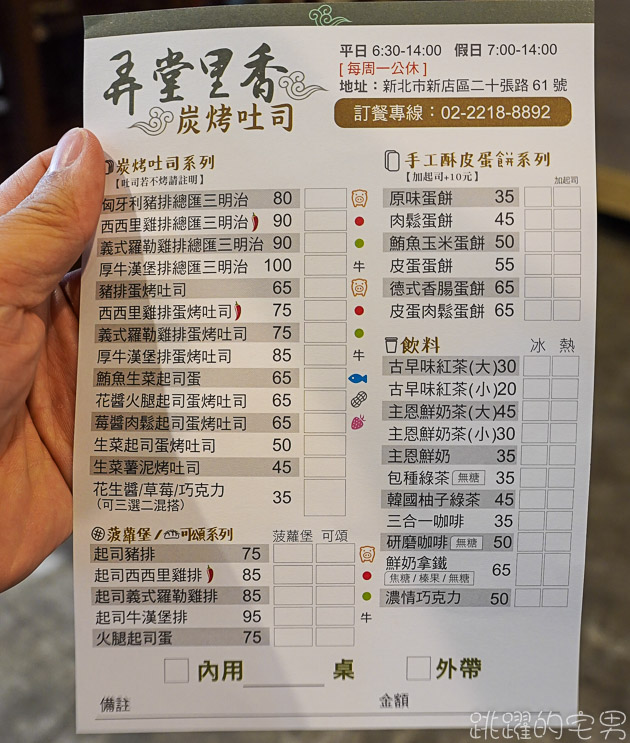 弄堂里香
炭烤吐司
平日 6:30-14:00 假日 7:00-14:00
[ 每周一公休 ]
地址：新北市新店區二十張路 61 號
訂餐專線：02-2218-8892
炭烤吐司系列
【吐司若不烤請註明】
匈牙利豬排總匯三明治 80
西西里雞排總匯三明治 90
義式羅勒雞排總匯三明治 90
厚牛漢堡排總匯三明治 100 牛
豬排蛋烤吐司 65
西西里雞排蛋烤吐司 75
義式羅勒雞排蛋烤吐司 75
厚牛漢堡排蛋烤吐司 85 牛
鮪魚生菜起司蛋 65
花醬火腿起司蛋烤吐司 65
莓醬肉鬆起司蛋烤吐司 65
生菜起司蛋烤吐司 50
生菜薯泥烤吐司 45
花生醬/草莓/巧克力 35
(可三選二混搭)
菠蘿堡/可頌系列 菠蘿堡 可頌
起司豬排 75
起司西西里雞排 85
起司義式羅勒雞排 85
起司牛漢堡排 95 牛
火腿起司蛋 75
手工酥皮蛋餅系列
【加起司+10元】 加起司
原味蛋餅 35
肉鬆蛋餅 45
鮪魚玉米蛋餅 50
皮蛋蛋餅 55
德式香腸蛋餅 65
皮蛋肉鬆蛋餅 65
飲料 冰 熱
古早味紅茶(大)30
古早味紅茶(小)20
主恩鮮奶茶(大)45
主恩鮮奶茶(小)30
主恩鮮奶 35
包種綠茶 無糖 35
韓國柚子綠茶 45
三合一咖啡 35
研磨咖啡 無糖 50
鮮奶拿鐵 65
焦糖 / 榛果 / 無糖
濃情巧克力 50
內用 桌 外帶
備註 金額
跳躍的宅男